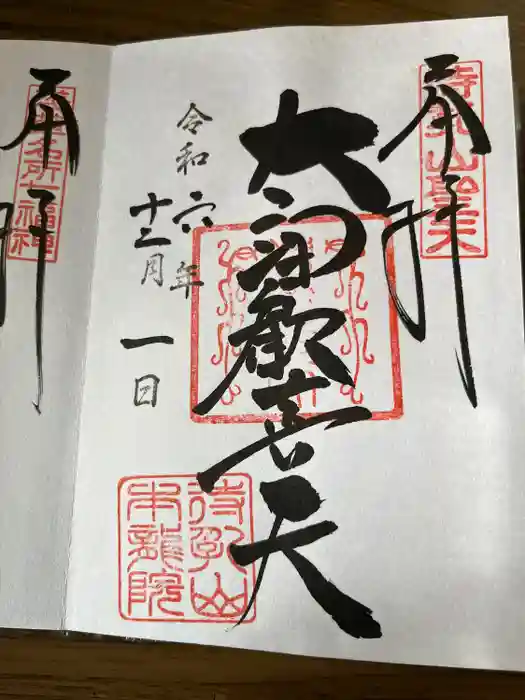 奉拝
待乳山聖天
大聖歓喜天
令和六年
十二月一日
待乳山
本龍院
奉拝
浅草名所七福神